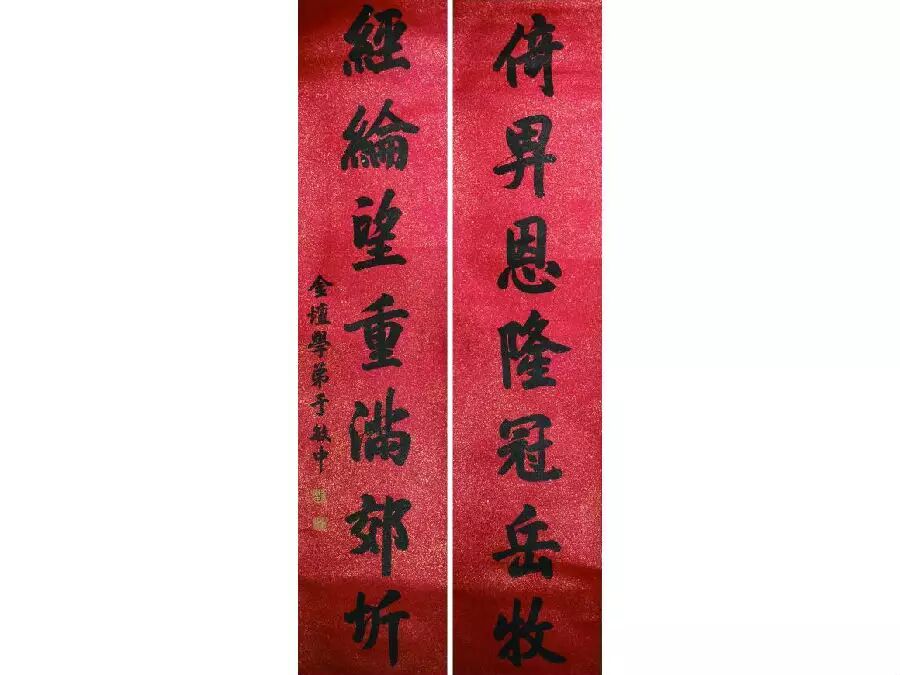 倚畀恩隆冠岳牧
經綸望重滿郊圻
金壇學弟于敏中